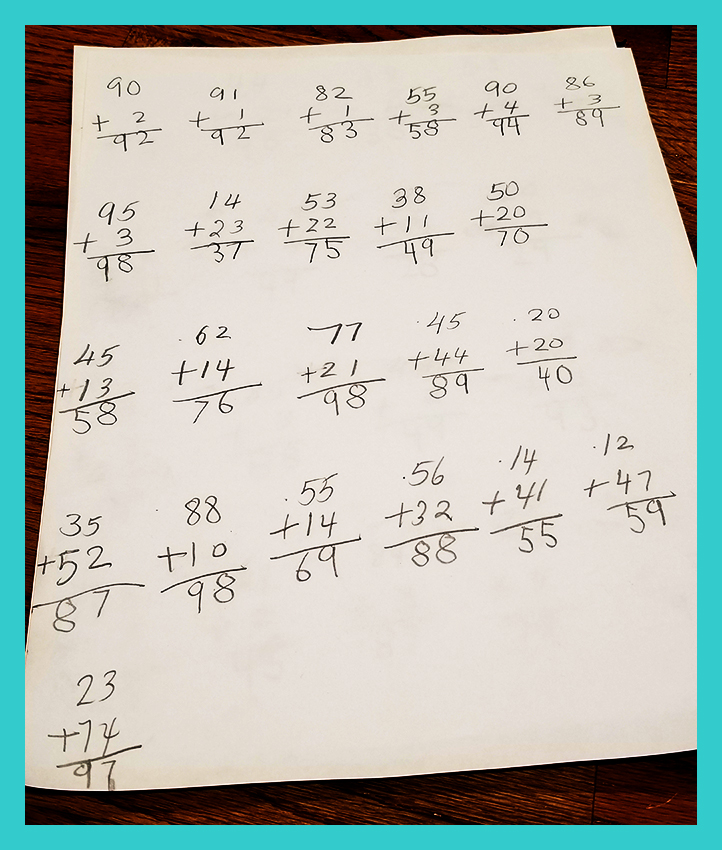 90 91 82 55 90 86
+ 2 + 1 + 1 + 3 + 4 + 3
92 92 83 58 94 89
95 14 53 38 50
+ 3 +23 +22 +11 +20
98 37 75 49 70
45 .62 77 .45 .20
+13 +14 +21 +44 +20
58 76 98 89 40
35 .88 .55 .56 .14 .12
+52 +10 +14 +32 +41 +47
87 98 69 88 55 59
23
+74
97